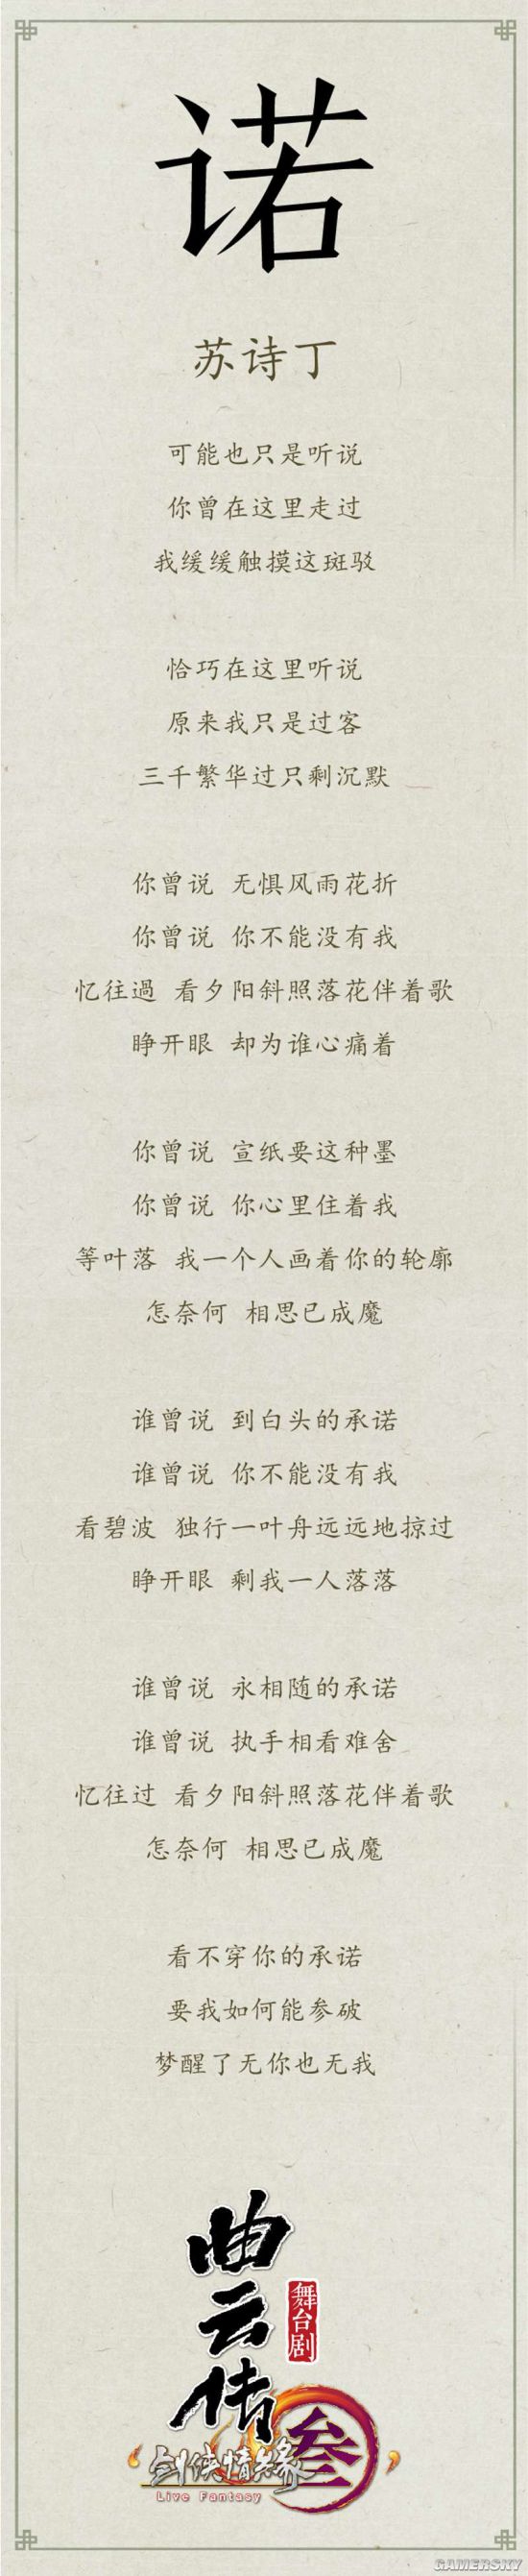 诺
苏诗丁
可能也只是听说
你曾在这里走过
我缓缓触摸这斑驳
恰巧在这里听说
原来我只是过客
三千繁华过只剩沉默
你曾说 无惧风雨花折
你曾说 你不能没有我
忆往過 看夕阳斜照落花伴着歌
睁开眼 却为谁心痛着
你曾说 宣纸要这种墨
你曾说 你心里住着我
等叶落 我一个人画着你的轮廓
怎奈何 相思已成魔
谁曾说 到白头的承诺
谁曾说 你不能没有我
看碧波 独行一叶舟远远地掠过
睁开眼 剩我一人落落
谁曾说 永相随的承诺
谁曾说 执手相看难舍
忆往过 看夕阳斜照落花伴着歌
怎奈何 相思已成魔
看不穿你的承诺
要我如何能参破
梦醒了无你也无我
曲云传
舞台剧
剑侠情缘
叁
Live Fantasy
GAMERSKY